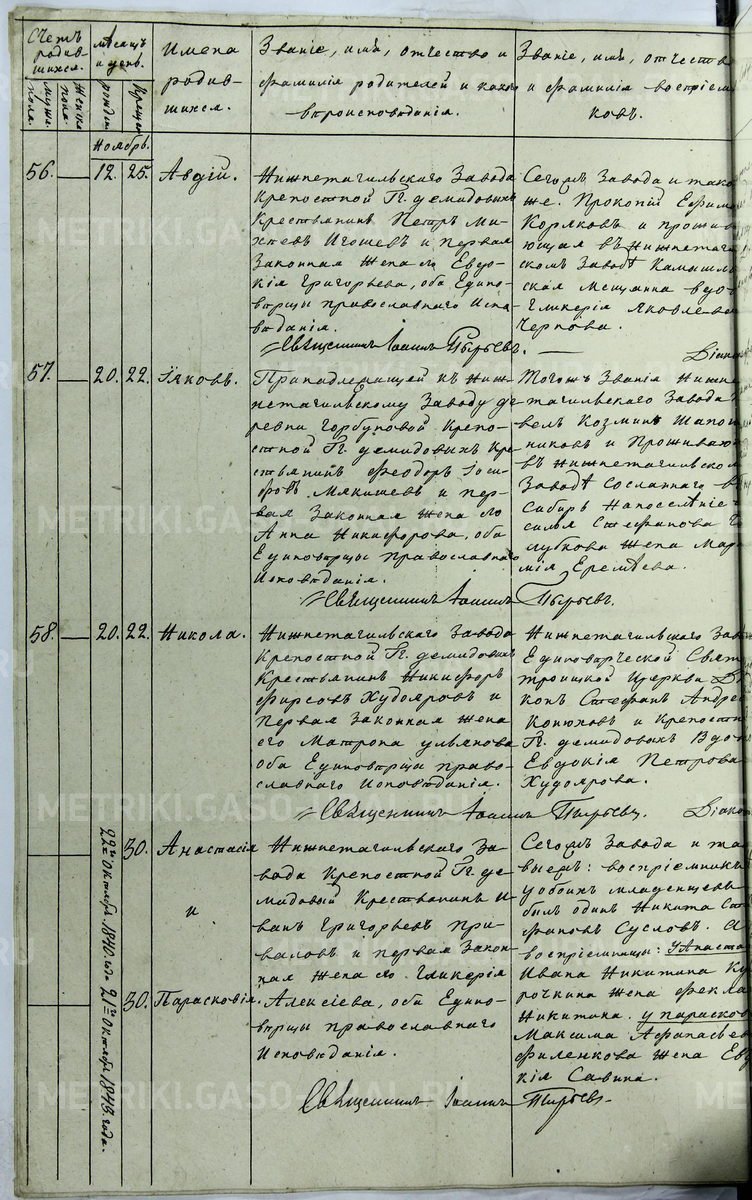 Счетъ родив-шихся.
Муже. пола.
Женска пола.
Мѣсяцъ и день.
рожден
Крещен
Имена
родив-
шихся.
Званіе, имя, отчество и
фамилія родителей и како
вѣроисповѣданія.
Званіе, имя, отчество
и фамилія воспріем
ковъ.
Ноябрь.
56. 12. 25. Авдій.
Нижнетагильскаго Завода
Крепостной Гг. демидовыхъ
Крестьянинъ Петръ Ми-
хѣевъ Игошевъ и первая
Законная жена его Евдо-
кія Григорьева, оба Едино-
вѣрцы православнаго Испо-
вѣданія.
Сегожъ Завода и тако
же. Прокопій Ефимо
Коряковъ и прожив
ающая въ Нижнетаги
скомъ Заводѣ Камышл
ская Мещанка вдо
Гликерія Яковлев
Чернова.
Священникъ Іоаннъ Пырьевъ. Діакон
57. 20. 22. Іаковъ.
Принадлежащей къ Ниж-
нетагильскому Заводу де
ревни Горбуновой Крепо-
стной Гг. демидовыхъ Кре
стьянинъ Феодоръ Іоси-
фовъ Мякишевъ и пер-
вая Законная жена его
Анна Никифорова, оба
Единовѣрцы Православнаго
Исповѣданія.
Тогожъ Званія Нижн
тагильскаго Завода
велъ Козминъ Шапош
никовъ и Проживаю
въ Нижнетагильском
Заводѣ Сосланнаго в
Сибирь Напоселѣніе
силья Стефанова Го
лубкова жена Мар
мія Еремѣева.
Священникъ Іоаннъ Пырьевъ.
58. 20. 22. Никола.
Нижнетагильскаго Завода
Крепостной Гг. демидовыхъ
Крестьянинъ Никифоръ
Фирсовъ Худояровъ и
Первая Законная жена
его Матрона ульянова
оба Единовѣрцы право-
славнаго Исповѣданія.
Нижнетагильскаго Зав
Единовѣрческой Свято
троицкой Церкви Діа
конъ Стефанъ Андре
Конюховъ и Крепостн
Гг. демидовыхъ Вдов
Евдокія Петрова
Худоярова.
Священникъ Іоаннъ Пырьевъ. Діакон
22го Октября 1840. года
21го Октября 1843. года.
30. Анастасія
и
30. Парасковія.
Нижнетагильскаго За-
вода Крепостной Гг. де
мидовый Крестьянинъ И
ванъ Григорьевъ При-
валовъ и первая Закон-
ная жена его Гликерія
Алексіева, оба Едино-
вѣрцы православнаго
Исповѣданія.
Сегожъ Завода и та
выеже: воспріемникъ
у обоихъ младенцевъ
былъ одинъ Никита Ст
фановъ Сусловъ. А
воспріемницы: у Анаста
Ивана Никитина Ку
рочкина жена Фекла
Никитина. у парасков
Максима Афанасьев
Филенкова жена Евдо
кія Савина.
Священникъ Іоаннъ Пырьевъ.
METRIKI.GASO-URAL.RU